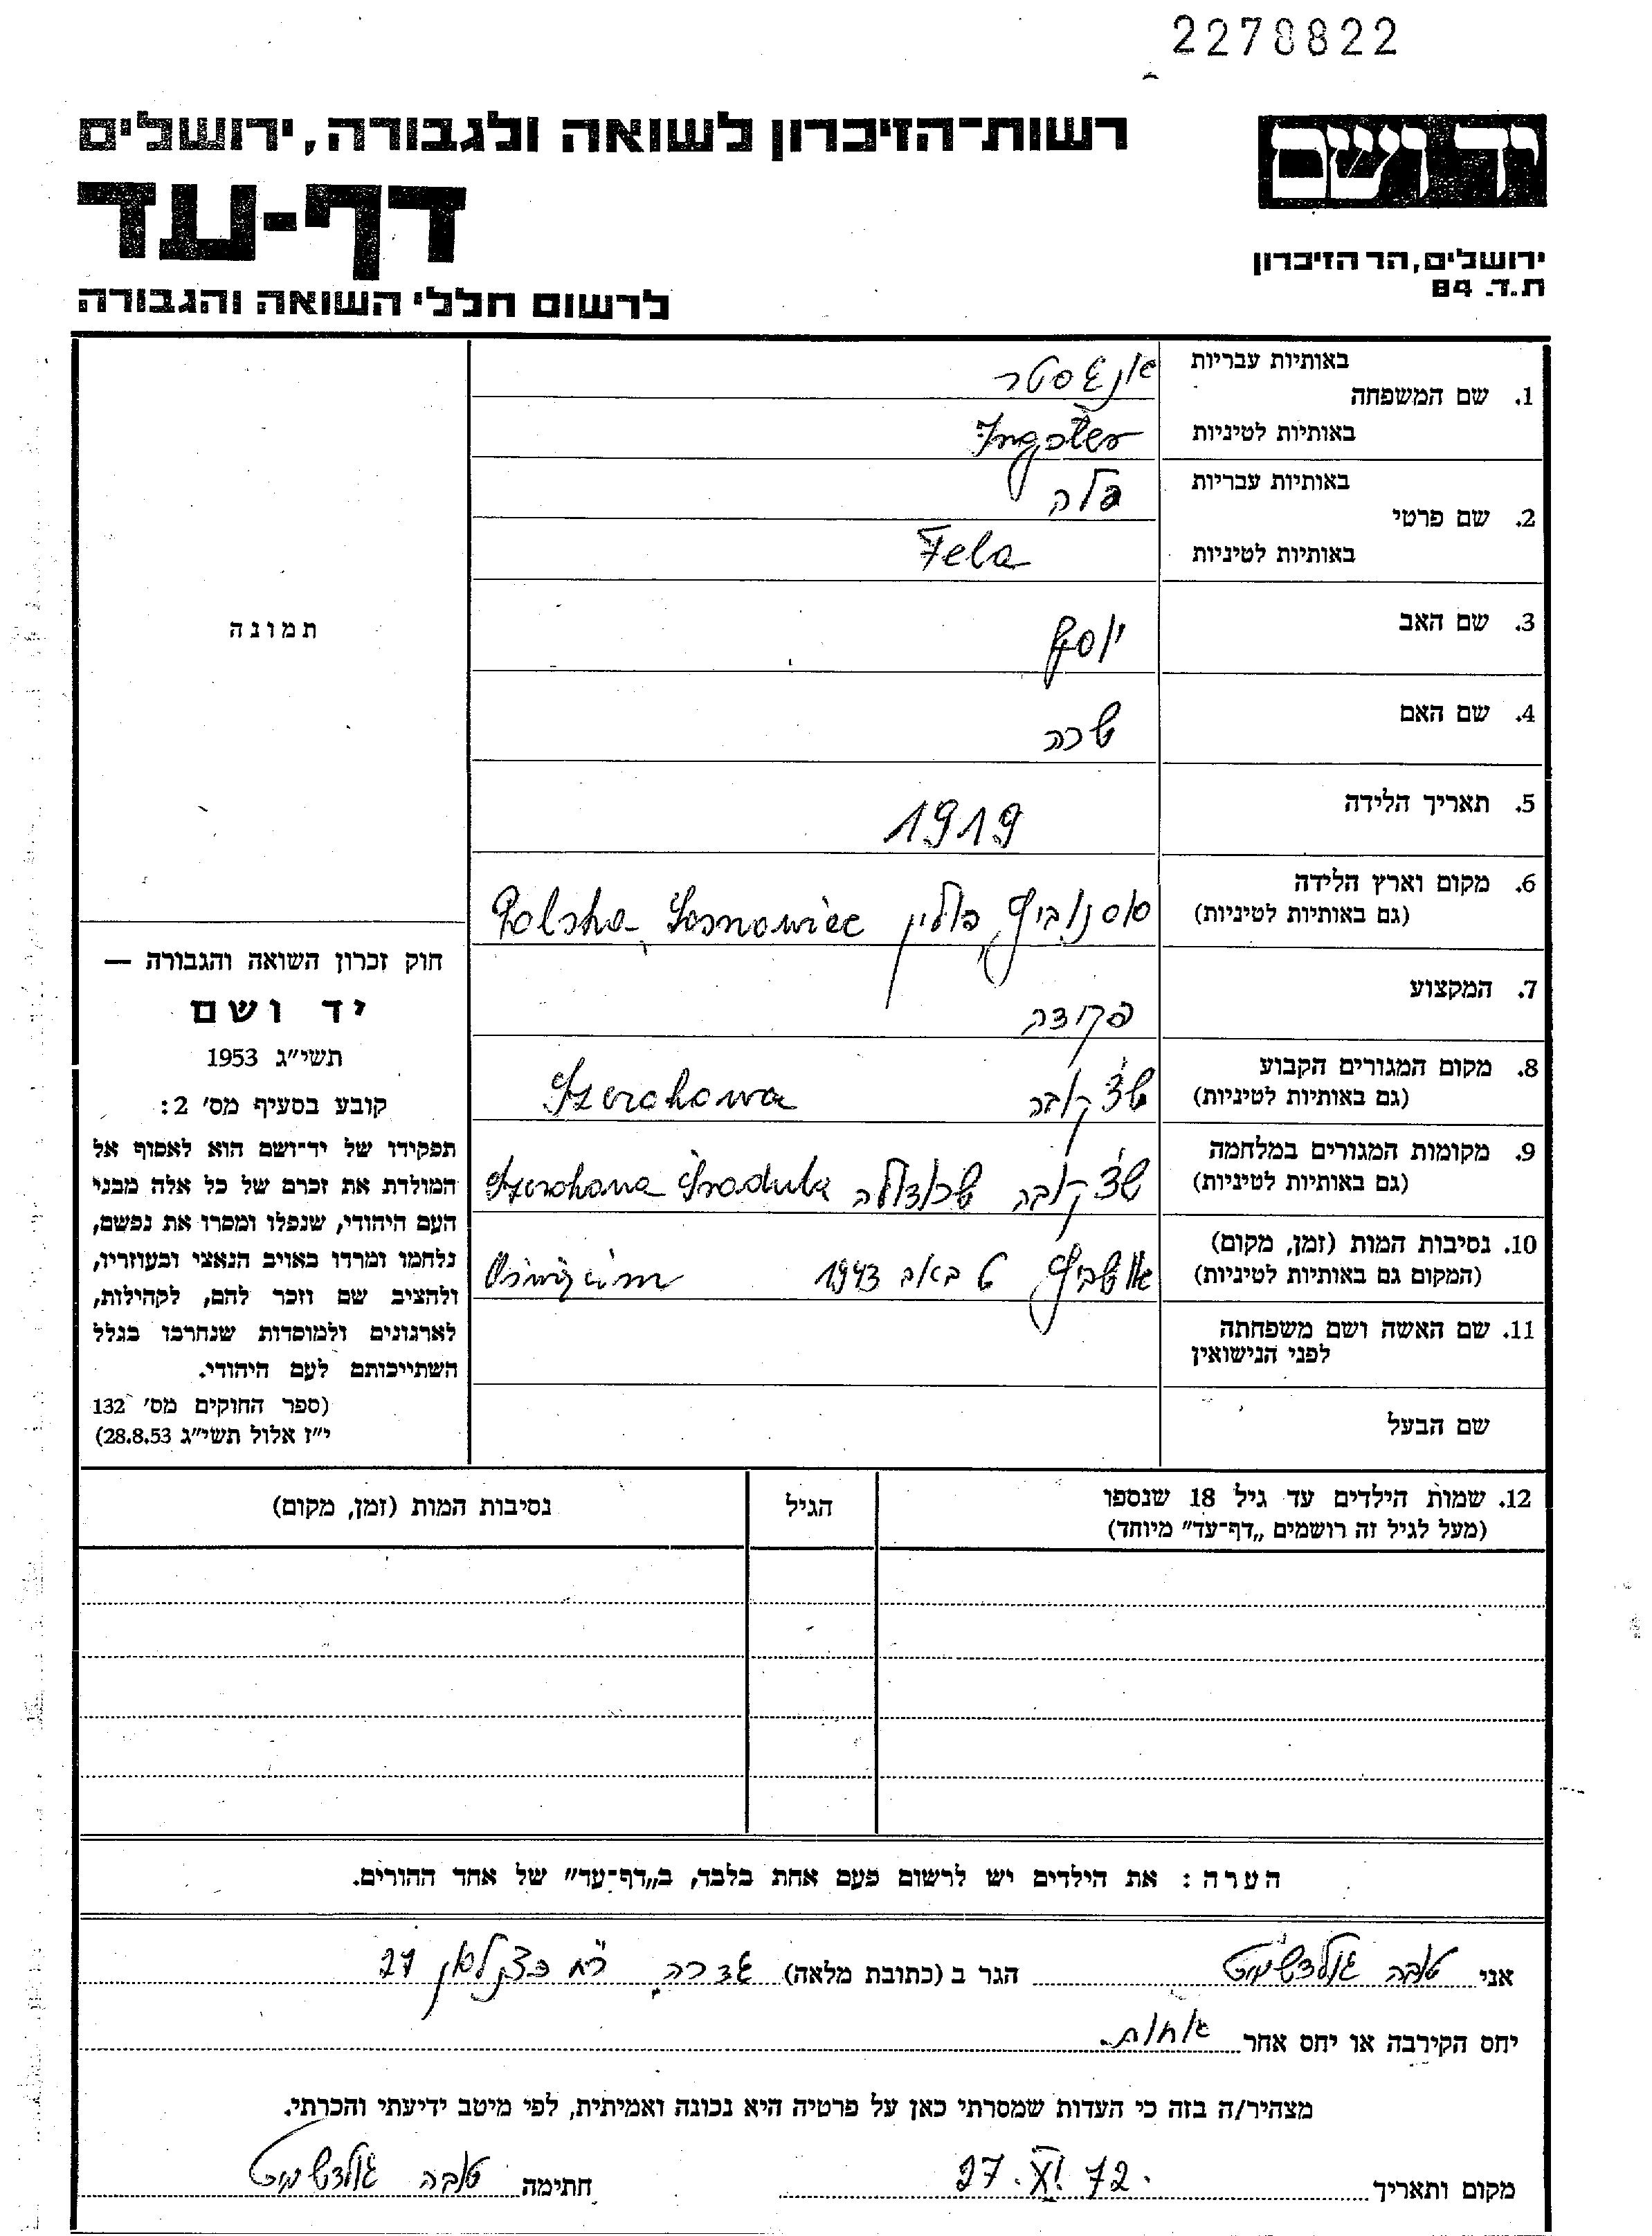 2278822
יד ושם
רשות־הזיכרון לשואה ולגבורה, ירושלים
דף-עד
ירושלים, הר הזיכרון
ת.ד. 84
לרשום חללי השואה והגבורה
באותיות עבריות אנגסטר
1. שם המשפחה
באותיות לטיניות Ingster
באותיות עבריות פלה
2. שם פרטי
באותיות לטיניות Fela
3. שם האב יוסף
4. שם האם שרה
5. תאריך הלידה 1919
6. מקום וארץ הלידה
(גם באותיות לטיניות) סוסנוביץ, פולין Polska, Sosnowiec
7. המקצוע פקידה
8. מקום המגורים הקבוע
(גם באותיות לטיניות) Szczakowa
9. מקומות המגורים במלחמה
(גם באותיות לטיניות) Szczakowa Środula
10. נסיבות המות (זמן, מקום)
(המקום גם באותיות לטיניות) אושביץ ט באב 1943
11. שם האשה ושם משפחתה
לפני הנישואין
שם הבעל
תמונה
חוק זכרון השואה והגבורה —
יד ושם
תשי״ג 1953
קובע בסעיף מס׳ 2:
תפקידו של יד־ושם הוא לאסוף אל
המולדת את זכרם של כל אלה מבני
העם היהודי, שנפלו ומסרו את נפשם,
נלחמו ומרדו באויב הנאצי ובעוזריו,
ולהציב שם וזכר להם, לקהילות,
לארגונים ולמוסדות שנחרבו בגלל
השתייכותם לעם היהודי.
(ספר החוקים מס׳ 132
י״ז אלול תשי״ג 28.8.53)
12. שמות הילדים עד גיל 18 שנספו
(מעל לגיל זה רושמים „דף־עד״ מיוחד)
הגיל
נסיבות המות (זמן, מקום)
הערה: את הילדים יש לרשום פעם אחת בלבד, ב„דף־עד״ של אחד ההורים.
אני טובה גולדשמיט הגר ב (כתובת מלאה) גדרה רח 27
יחס הקירבה או יחס אחר אחות.
מצהיר/ה בזה כי העדות שמסרתי כאן על פרטיה היא נכונה ואמיתית, לפי מיטב ידיעתי והכרתי.
מקום ותאריך 27.XI.72 חתימה טובה גולדשמיט